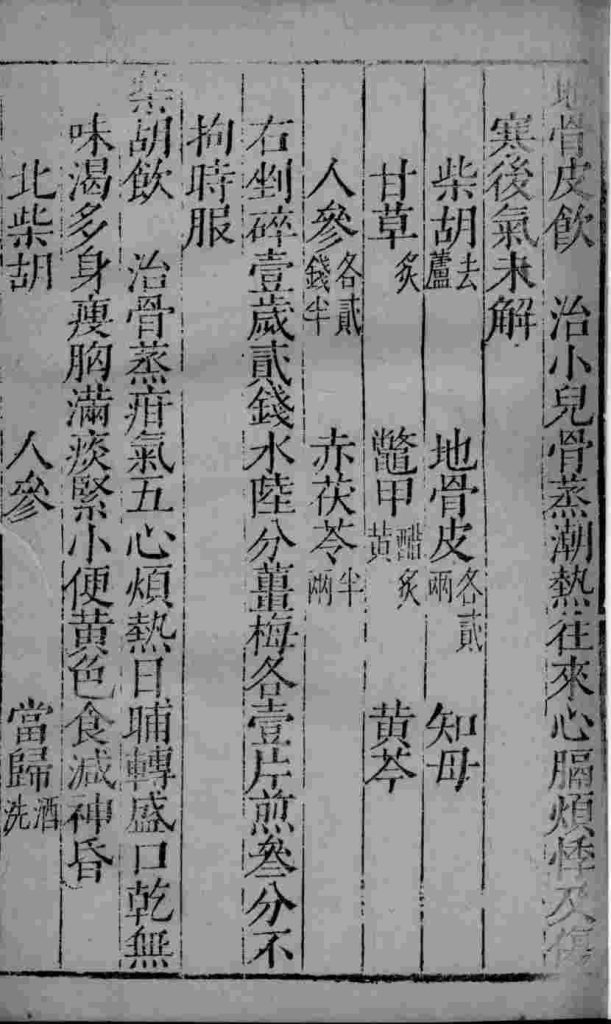 地骨皮飲　治小兒骨蒸潮熱往來心膈煩悸及傷
寒後氣未解
柴胡去蘆　地骨皮各貳兩　知母
甘草炙　鼈甲醋炙黃　黃芩
人參各貳錢半　赤茯苓半兩
右剉碎壹歲貳錢水陸分薑梅各壹片煎叄分不
拘時服
柴胡飲　治骨蒸疳氣五心煩熱日晡轉盛口乾無
味渴多身瘦胸滿痰緊小便黃色食減神昏
北柴胡　人參　當歸酒洗